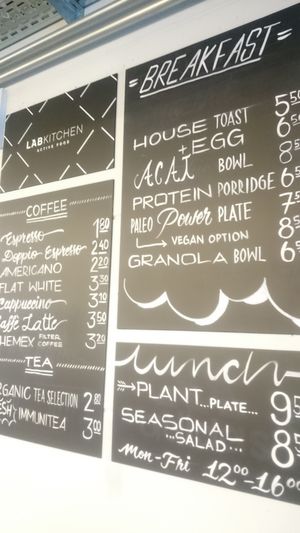 LABKITCHEN
ACTIVE FOOD
COFFEE
Espresso 1.80
Doppio Espresso 2.40
AMERICANO 2.20
FLAT WHITE 3.30
Cappuccino 3.10
Caffè Latte 3.50
HEMEX FILTER COFFEE 3.20
TEA
RGANIC TEA SELECTION 2.80
ESH IMMUNITEA 3.00
BREAKFAST
HOUSE TOAST 5.5
+ EGG 6.5
AÇAÍ BOWL 8.5
PROTEIN PORRIDGE 6.5
PALEO Power PLATE 7.5
VEGAN OPTION 8.5
GRANOLA BOWL 6.5
Lunch
PLANT...PLATE... 9.5
SEASONAL
...SALAD... 8.5
MON-FRI 12:00-16:00